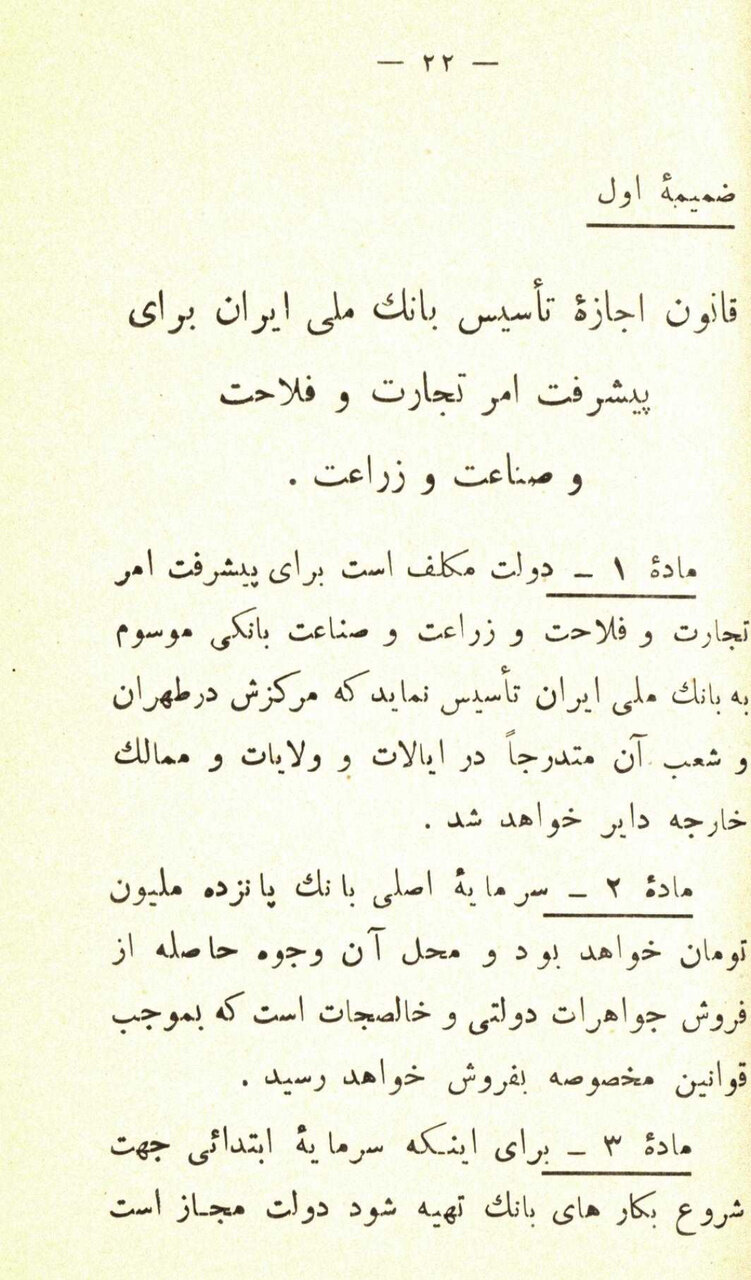 — ۲۲ —
ضمیمهٔ اول
قانون اجازهٔ تأسیس بانك ملی ایران برای
پیشرفت امر تجارت و فلاحت
و صناعت و زراعت .
مادهٔ ۱ ـ دولت مکلف است برای پیشرفت امر
تجارت و فلاحت و زراعت و صناعت بانکی موسوم
به بانك ملی ایران تأسیس نماید که مرکزش درطهران
و شعب آن متدرجاً در ایالات و ولایات و ممالك
خارجه دایر خواهد شد .
مادهٔ ۲ ـ سرمایهٔ اصلی بانك پانزده ملیون
تومان خواهد بود و محل آن وجوه حاصله از
فروش جواهرات دولتی و خالصجات است که بموجب
قوانین مخصوصه بفروش خواهد رسید .
مادهٔ ۳ ـ برای اینکه سرمایهٔ ابتدائی جهت
شروع بکار های بانك تهیه شود دولت مجاز است